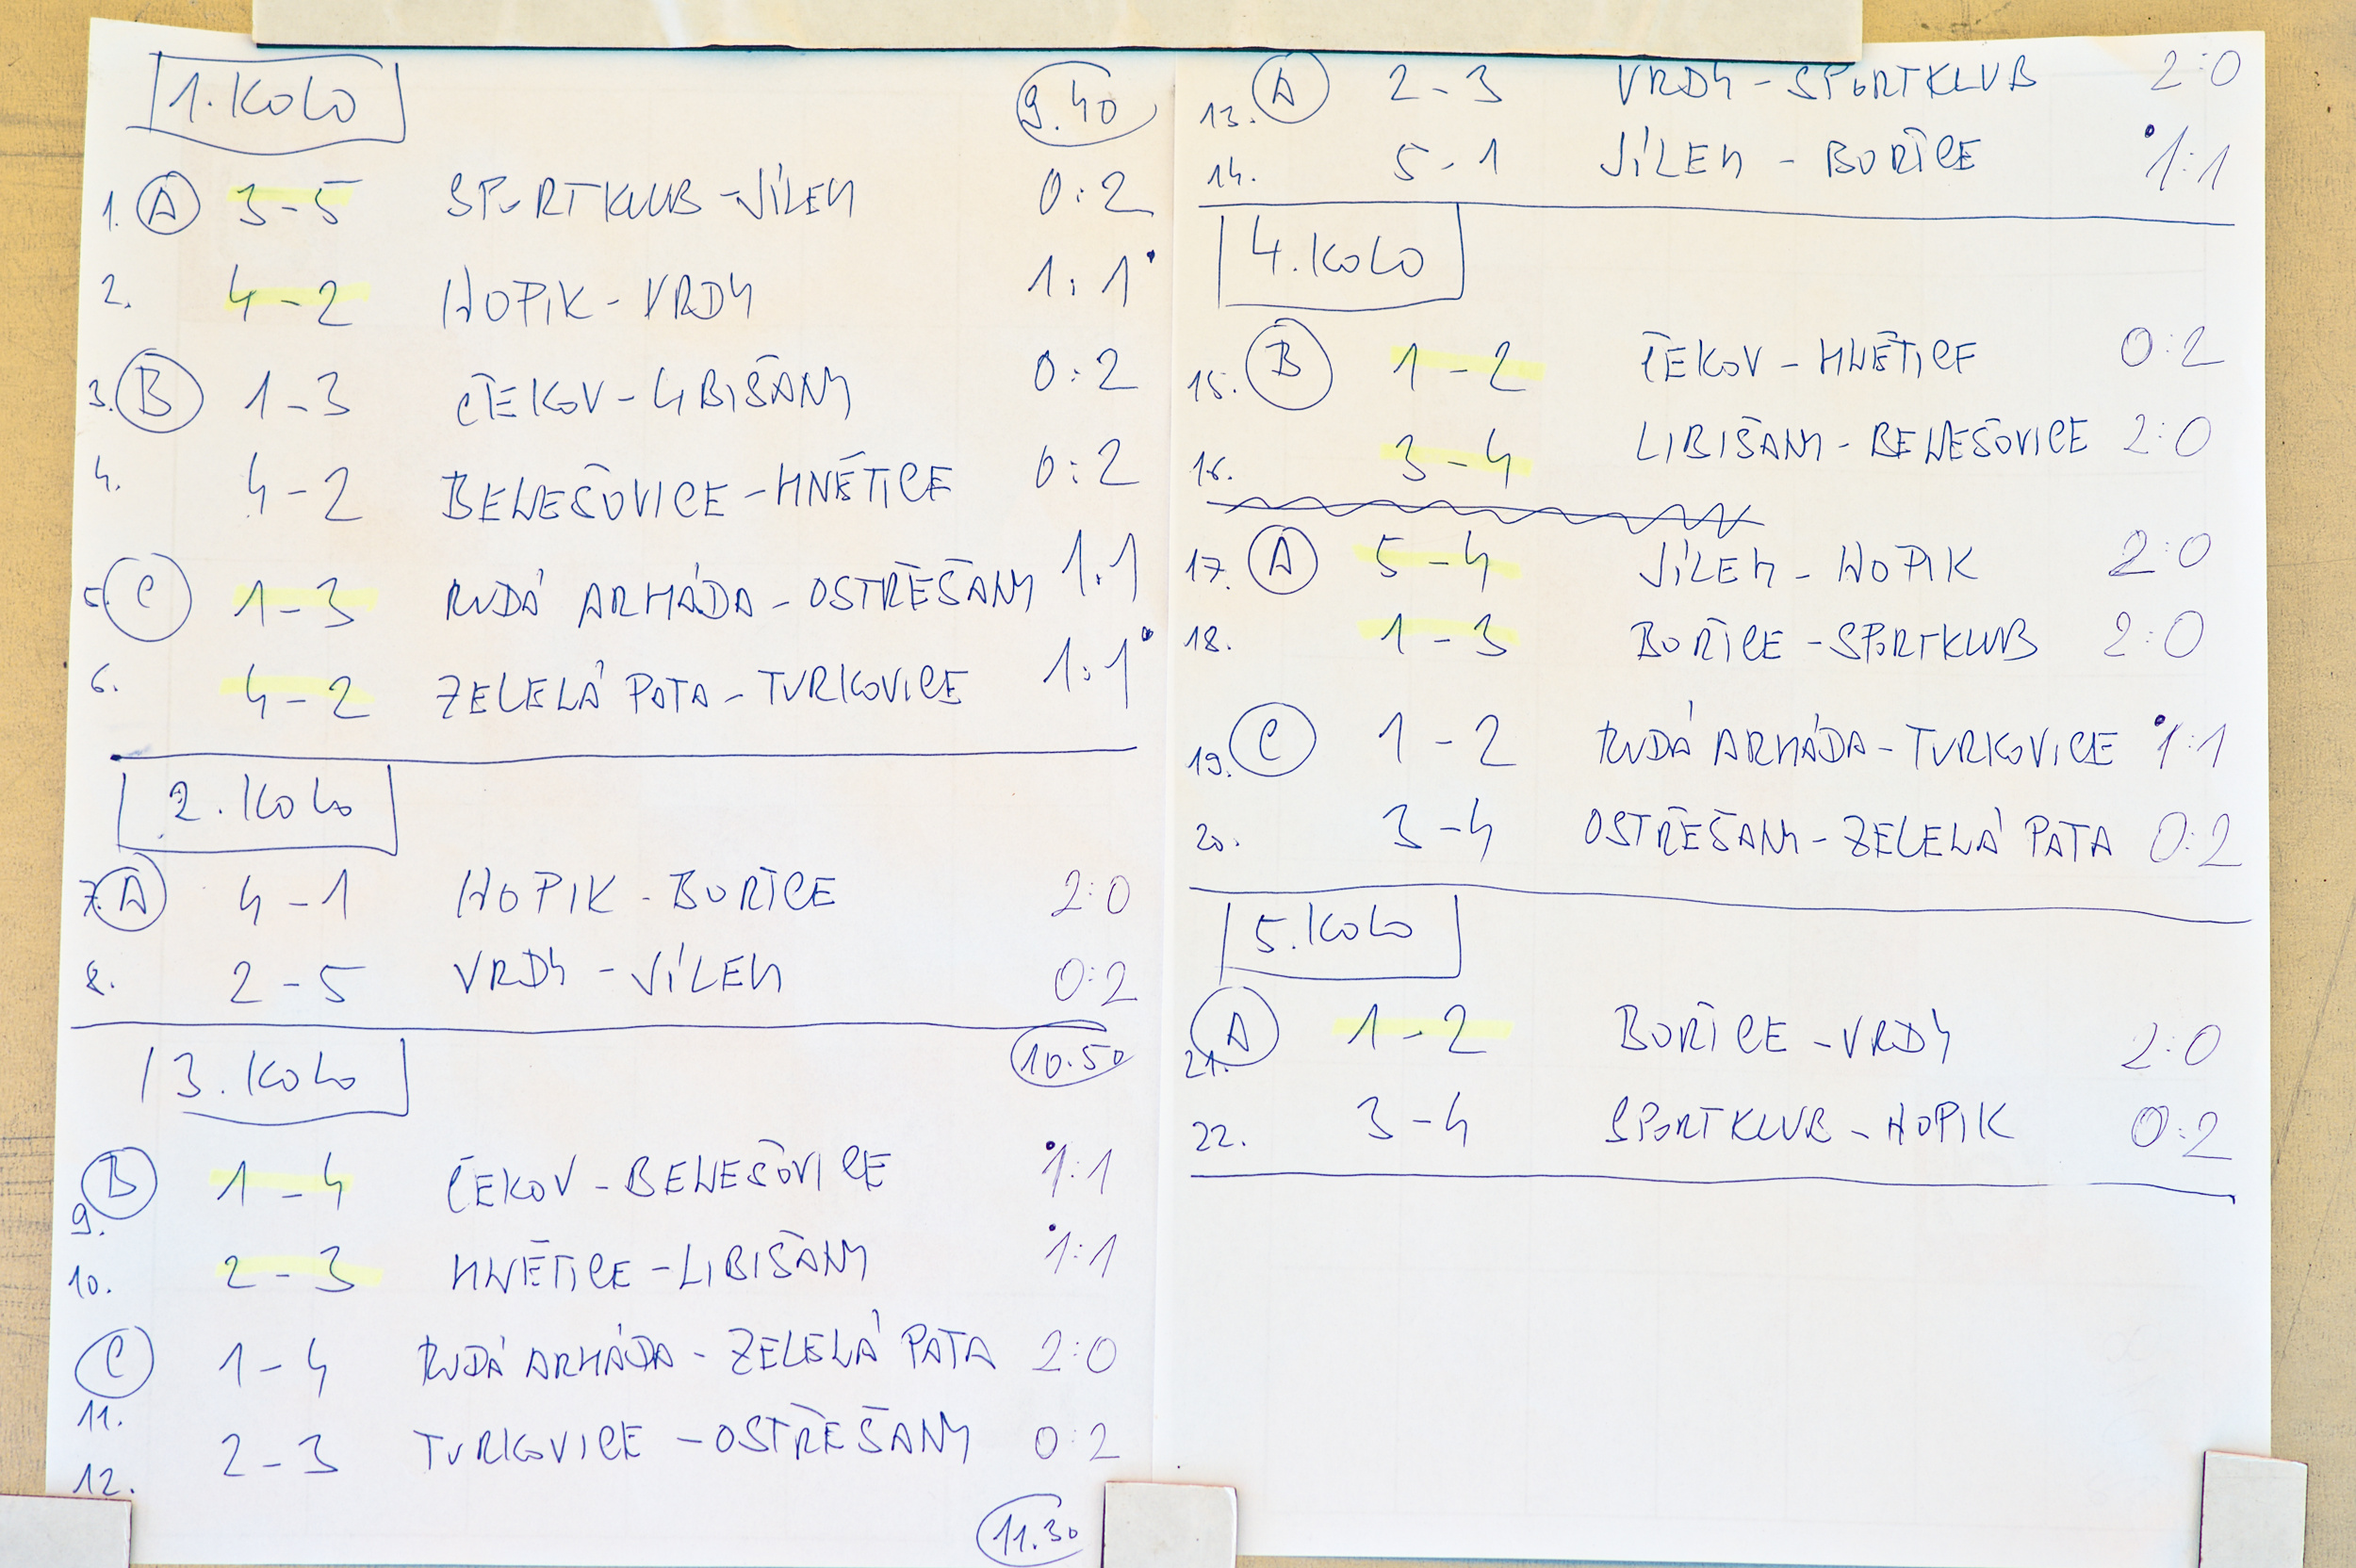 1. KOLO 9.40
1. A 3-5 SPORTKLUB-JÍLEM 0:2
2. 4-2 HOPIK-VRDY 1:1
3. B 1-3 ČEKOV-LIBIŠANY 0:2
4. 4-2 BENEŠOVICE-HNĚTICE 0:2
5. C 1-3 RUDÁ ARMÁDA-OSTŘEŠANY 1:1
6. 4-2 ZELENÁ PATA-TURKOVICE 1:1
2. KOLO
7. A 4-1 HOPIK-BOŘICE 2:0
8. 2-5 VRDY-JÍLEM 0:2
3. KOLO 10.50
9. B 1-4 ČEKOV-BENEŠOVICE 1:1
10. 2-3 HNĚTICE-LIBIŠANY 1:1
11. C 1-4 RUDÁ ARMÁDA-ZELENÁ PATA 2:0
12. 2-3 TURKOVICE-OSTŘEŠANY 0:2
11.30
13. A 2-3 VRDY-SPORTKLUB 2:0
14. 5-1 JÍLEM-BOŘICE 1:1
4. KOLO
15. B 1-2 ČEKOV-HNĚTICE 0:2
16. 3-4 LIBIŠANY-BENEŠOVICE 2:0
17. A 5-4 JÍLEM-HOPIK 2:0
18. 1-3 BOŘICE-SPORTKLUB 2:0
19. C 1-2 RUDÁ ARMÁDA-TURKOVICE 1:1
20. 3-4 OSTŘEŠANY-ZELENÁ PATA 0:2
5. KOLO
21. A 1-2 BOŘICE-VRDY 2:0
22. 3-4 SPORTKLUB-HOPIK 0:2